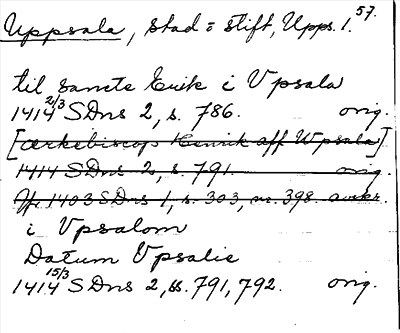 Uppsala, stad o stift, Upps. l. 57.
til sancte Erik i Vpsala
1414 2/3 SDns 2, s. 786. orig.
[ærkebiscop Henrik aff Wpsala]
1414 SDns 2, s. 791. orig.
Jfr 1403 SDns 1, s. 303, nr. 398.
i Vpsalom
Datum Vpsalie
1414 15/3 SDns 2, ss. 791, 792. orig.